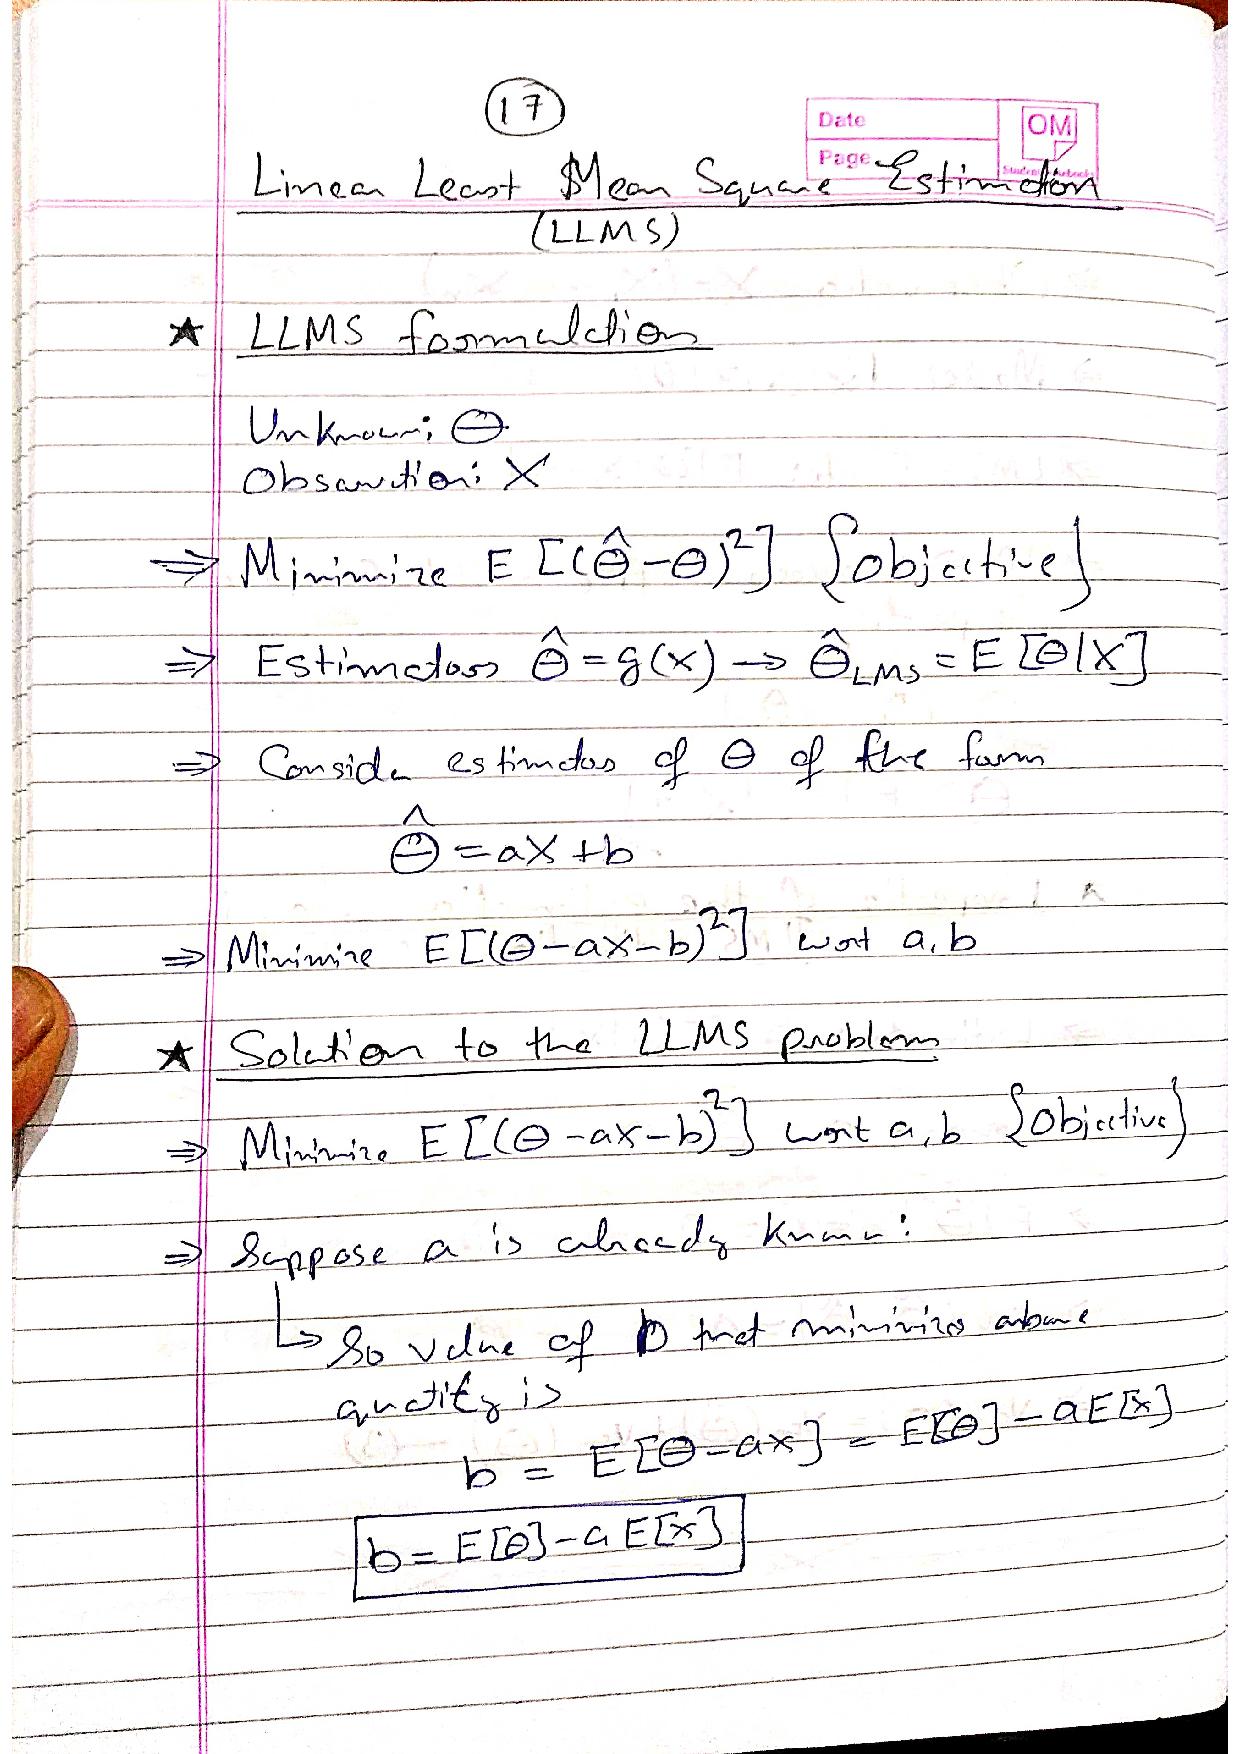 17
Date
OM
Page
Linear Least Mean Square Estimation
(LLMS)
★ LLMS formulation
Unknown: Θ
Observation: X
⇒ Minimize E[(Θ̂-Θ)²] {objective}
⇒ Estimators Θ̂ = g(X) → Θ̂LMS = E[Θ|X]
⇒ Consider estimators of Θ of the form
Θ̂ = aX + b
⇒ Minimize E[(Θ-aX-b)²] wrt a, b
★ Solution to the LLMS problem
⇒ Minimize E[(Θ-aX-b)²] wrt a, b {Objective}
⇒ Suppose a is already known:
↳ So value of b that minimizes above
quantity is
b = E[Θ-aX] = E[Θ] - aE[X]
b = E[Θ] - a E[X]